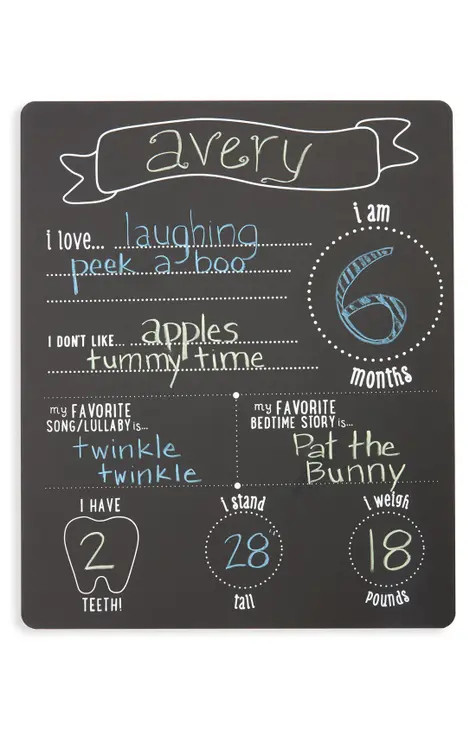 avery
i love... laughing
peek a boo
i am
6
months
I DON'T LIKE... apples
tummy time
my FAVORITE
SONG/LULLABY is...
twinkle
twinkle
my FAVORITE
BEDTIME STORY is...
Pat the
Bunny
I HAVE
2
TEETH!
i stand
28"
tall
i weigh
18
pounds